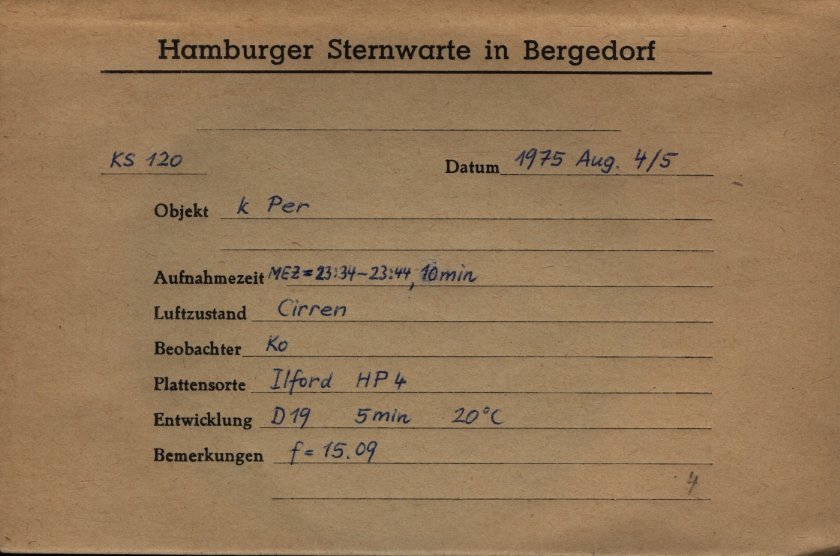 Hamburger Sternwarte in Bergedorf
KS 120 Datum 1975 Aug. 4/5
Objekt k Per
Aufnahmezeit MEZ = 23:34 - 23:44, 10 min
Luftzustand Cirren
Beobachter Ko
Plattensorte Ilford HP4
Entwicklung D19 5 min 20°C
Bemerkungen f = 15.09
4